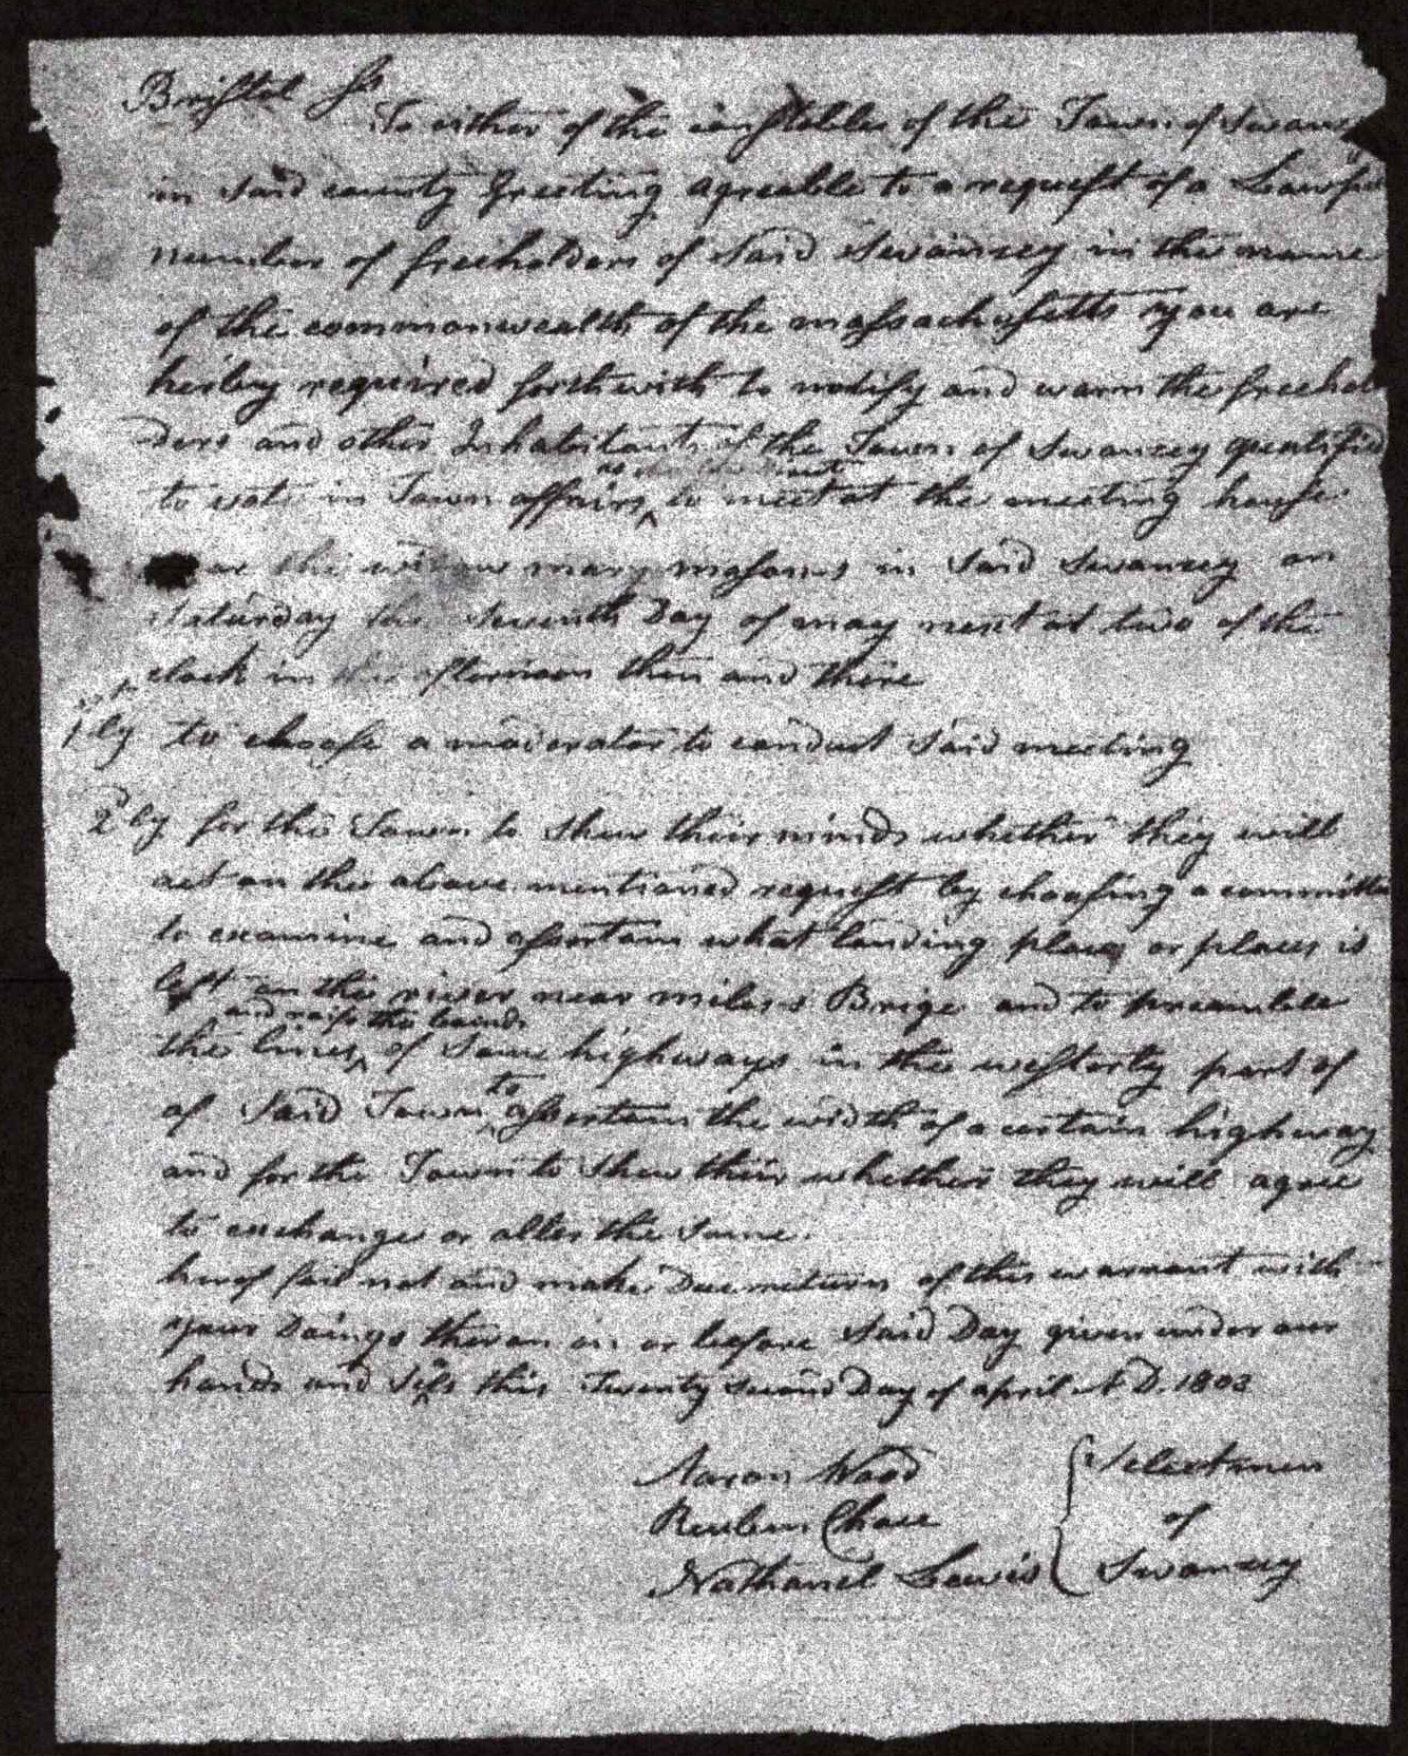 Bristol Ss
To either of the constables of the Town of Swanz
in Said county Greeting agreable to a request of a Lawfu
number of freeholders of Said Swanzey in the name
of the commonwealth of the massachusetts you are
herby required forthwith to notify and warn the freehol
ders and other Inhabitants of the Town of Swanzey qualified
to vote in Town affairs to meet at the meeting house
the widow mary masons in Said Swanzey on
Saturday the Seventh Day of may next at two of the
clock in the afternoon then and there
1st ly to choose a moderator to conduct Said meeting
2d ly for the Town to Shew their minds whether they will
act on the above mentioned request by choosing a committe
to examine and assertain what landing place or places is
left on the river near miles's Brige and to preambelate
and rais the bounds
the lines of Some highways in the westorly part of
of Said Town to assertain the width of a certain highway
and for the Town to Shew their whether they will agree
to exchange or alter the Same.
hereof fail not and make Due return of this warrant with
your Doings theron on or before Said Day given under our
hands and Sels this Twenty Second Day of april A D. 1803
Aaron Wood
Reuben Chace
Nathaniel Lewis
Selectmen
of
Swanzey